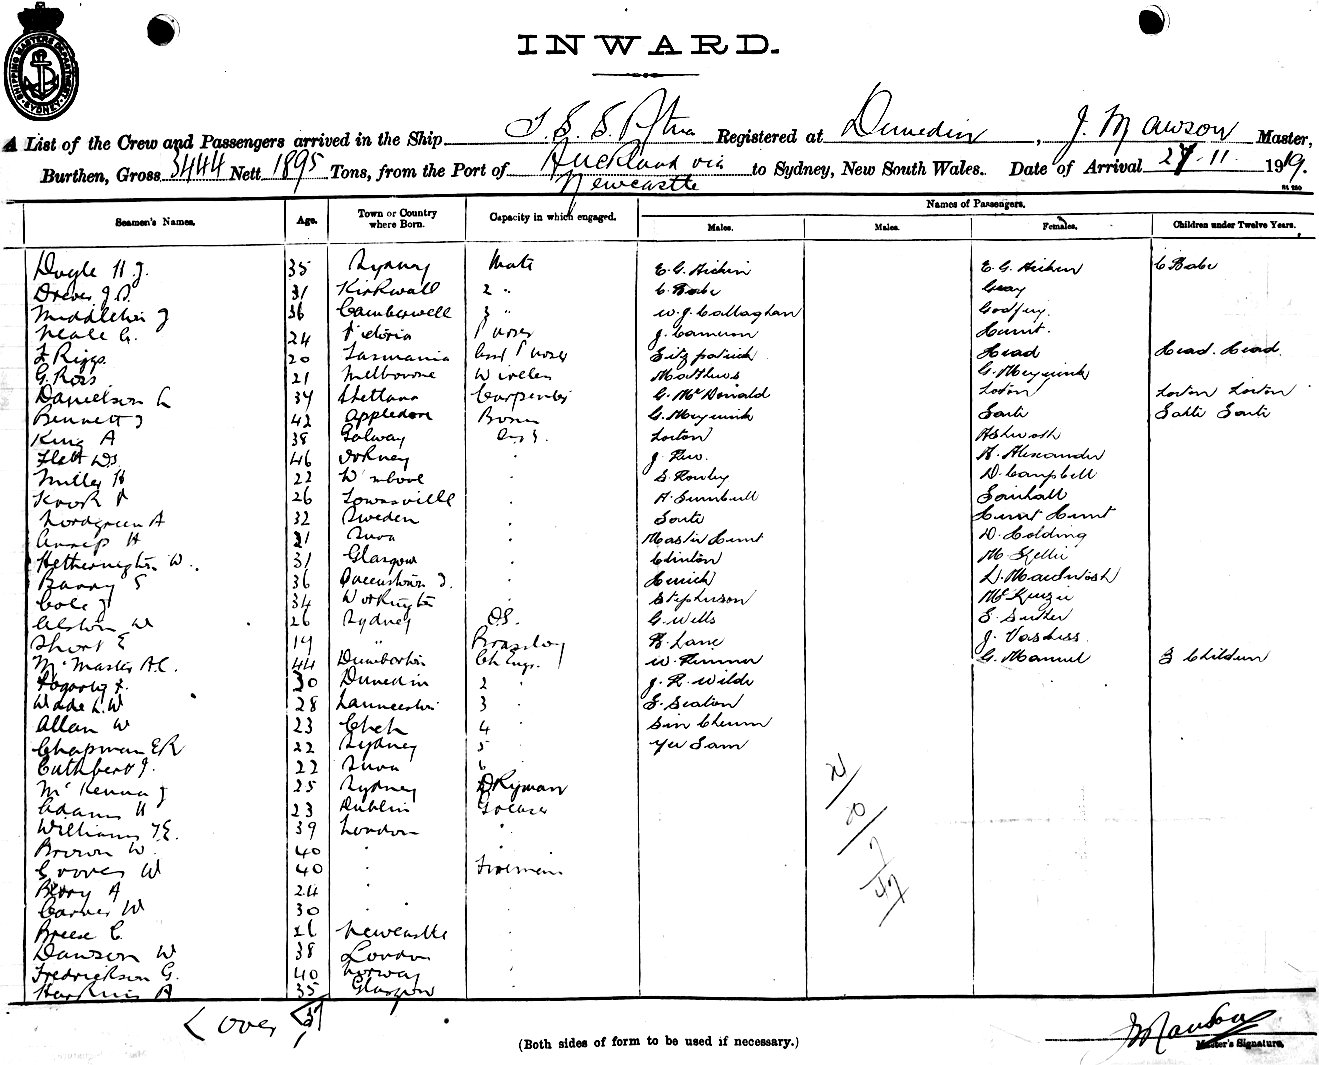 SHIPPING MASTERS DEPARTMENT SYDNEY
INWARD.
A List of the Crew and Passengers arrived in the Ship T.S.S. Atua Registered at Dunedin, J. Mawson Master,
Burthen, Gross 3444 Nett 1895 Tons, from the Port of Auckland via Newcastle to Sydney, New South Wales. Date of Arrival 27-11-1919.
Seamen's Names. Age. Town or Country where Born. Capacity in which engaged. Names of Passengers.
Males. Males. Females. Children under Twelve Years.
Doyle H J. 35 Sydney Mate E. G. Aickin E. G. Aicken C Babe
Drever J D. 31 Kirkwall 2 " C. Babe Gray
Middleton J 36 Camberwell 3 " W. J. Callaghan Godfrey.
Neale G. 24 Victoria Purser J. Cameron Hunt.
F Riggs 20 Tasmania Asst Purser Fitzpatrick Head Head. Head
G. Ross 21 Melbourne Wireless Matthews G. Meyrick
Danielson L 34 Shetland Carpenter G. McDonald Loston Loston Loston
Bennett J 42 Appledore Bosun G. Meyrick Sarti Sarti Sarti
King A 38 Galway A.B. Loston Ashworth
Flett WS 46 Orkney " J. Rew. A. Alexander
Miller H 22 W'nbool " S. Rowley D. Campbell
26 Townsville " A. Turnbull Fairhall
Nordgreen A 32 Sweden " Sarti Hunt Hunt
21 Suva " Master Hunt D. Holding
Hetherington W. 31 Glasgow " Clinton M. Kellie
Barry S 36 Queenstown " D. Mackintosh
Cole J 34 Workington " Stephenson McKenzie
Alston W 26 Sydney O.S. G. Wells
Short E 19 " Brassboy R. Lane
McMaster A.C. 44 Dumbarton Ch Engr. G. Manuel 3 Children
Fogarty F. 30 Dunedin 2 " J. R. Wilde
Wade L. W 28 Launceston 3 " S. Seaton
Allan W 23 4 " Sin Cheum
Chapman ER 22 Sydney 5 " Yee Sam
Cuthbert J. 22 Suva 6
McKenna J 25 Sydney Dkyman
Adams H 23 Dublin Greaser
Williams T E. 39 London "
Brown W. 40 " "
Groves W 40 " Fireman
Berry A 24 " "
Carver W 30 " "
Breese C. 26 Newcastle "
Dawson W 38 London "
Fredrickson G. 40 Norway "
Harkins A 35 Glasgow "
Over
J Mawson
Master's Signature.
(Both sides of form to be used if necessary.)